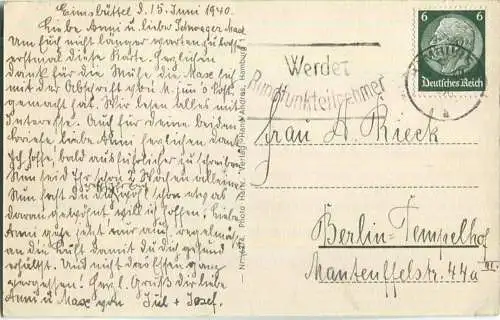 Eimsbüttel d. 15. Juni 1940.
Liebe Anni u. lieber Schwager Max
Um Euch nicht länger warten zu lassen
erstmal diese Karte. Herzlichen
Dank für die Mühe die Max sich mit
der Abschrift von
gemacht hat. Wir lesen alles mit
Interesse. Auch für Deine beiden
Briefe, liebe Anni herzlichen Dank
Ich hoffe, bald ausführlicher zu schreiben
Nun seid Ihr schon 2 Wochen alleine
Nun hast Du Dich wohl schon etwas
daran gewöhnt will ich hoffen. Liebe
Anni gehe jetzt nur auch regelmäßig
an die Luft damit Du Dich gesund
erhältst. Und nicht das Essen ganz
vergessen! Herzl. Gruß Dir liebe
Anni u. Max von Jul + Josef.
Photo Verlag Hans Andres, Hamburg 1
Werdet
Rundfunkteilnehmer
6 6
Deutsches Reich
Frau A. Rieck
Berlin-Tempelhof
Manteuffelstr. 44a